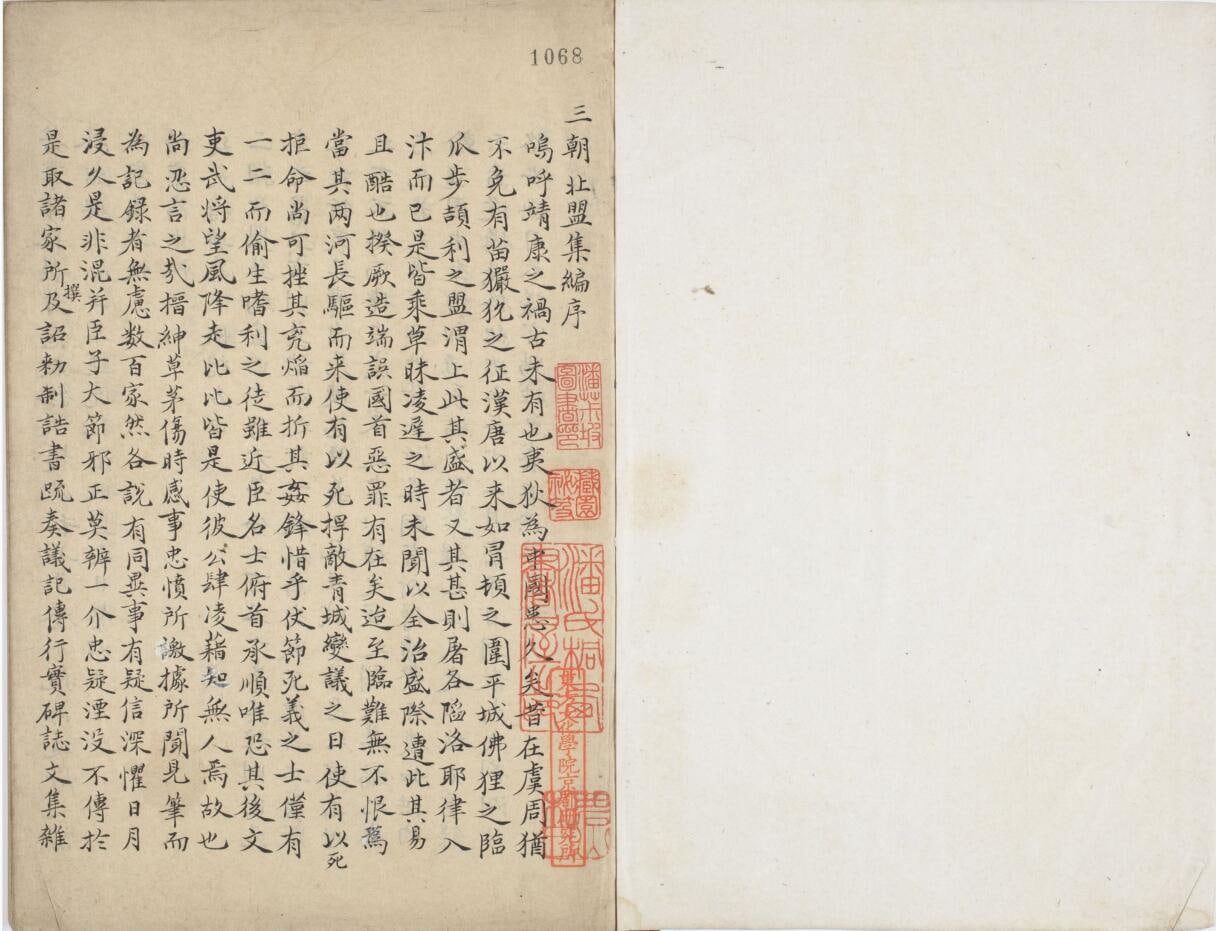 1068
三朝北盟集編序
嗚呼靖康之禍古未有也夷狄為中國患久矣昔在虞周猶
不免有苗玁狁之征漢唐以来如冐頓之圍平城佛狸之臨
瓜步頡利之盟渭上此其盛者又其甚則屠各䧟洛耶律入
汴而已是皆乘草昧凌遲之時未聞以全治盛際遭此其易
且酷也揆厥造端誤國首惡罪有在矣迨至臨難無不恨焉
當其两河長驅而来使有以死捍敵青城變議之日使有以死
拒命尚可挫其兇熖而折其姦鋒惜乎伏節死義之士僅有
一二而偷生嗜利之徒雖近臣名士俯首承順唯恐其後文
吏武将望風降走比比皆是使彼公肆凌藉知無人焉故也
尚忍言之㢤搢紳草茅傷時感事忠憤所激據所聞見筆而
為記録者無慮数百家然各說有同異事有疑信深懼日月
浸久是非混并臣子大節邪正莫辨一介忠疑湮没不傳於
是取諸家所撰及詔勑制誥書䟽奏議記傳行實碑誌文集雜
潘茮坡圖書印
藏園秘笈